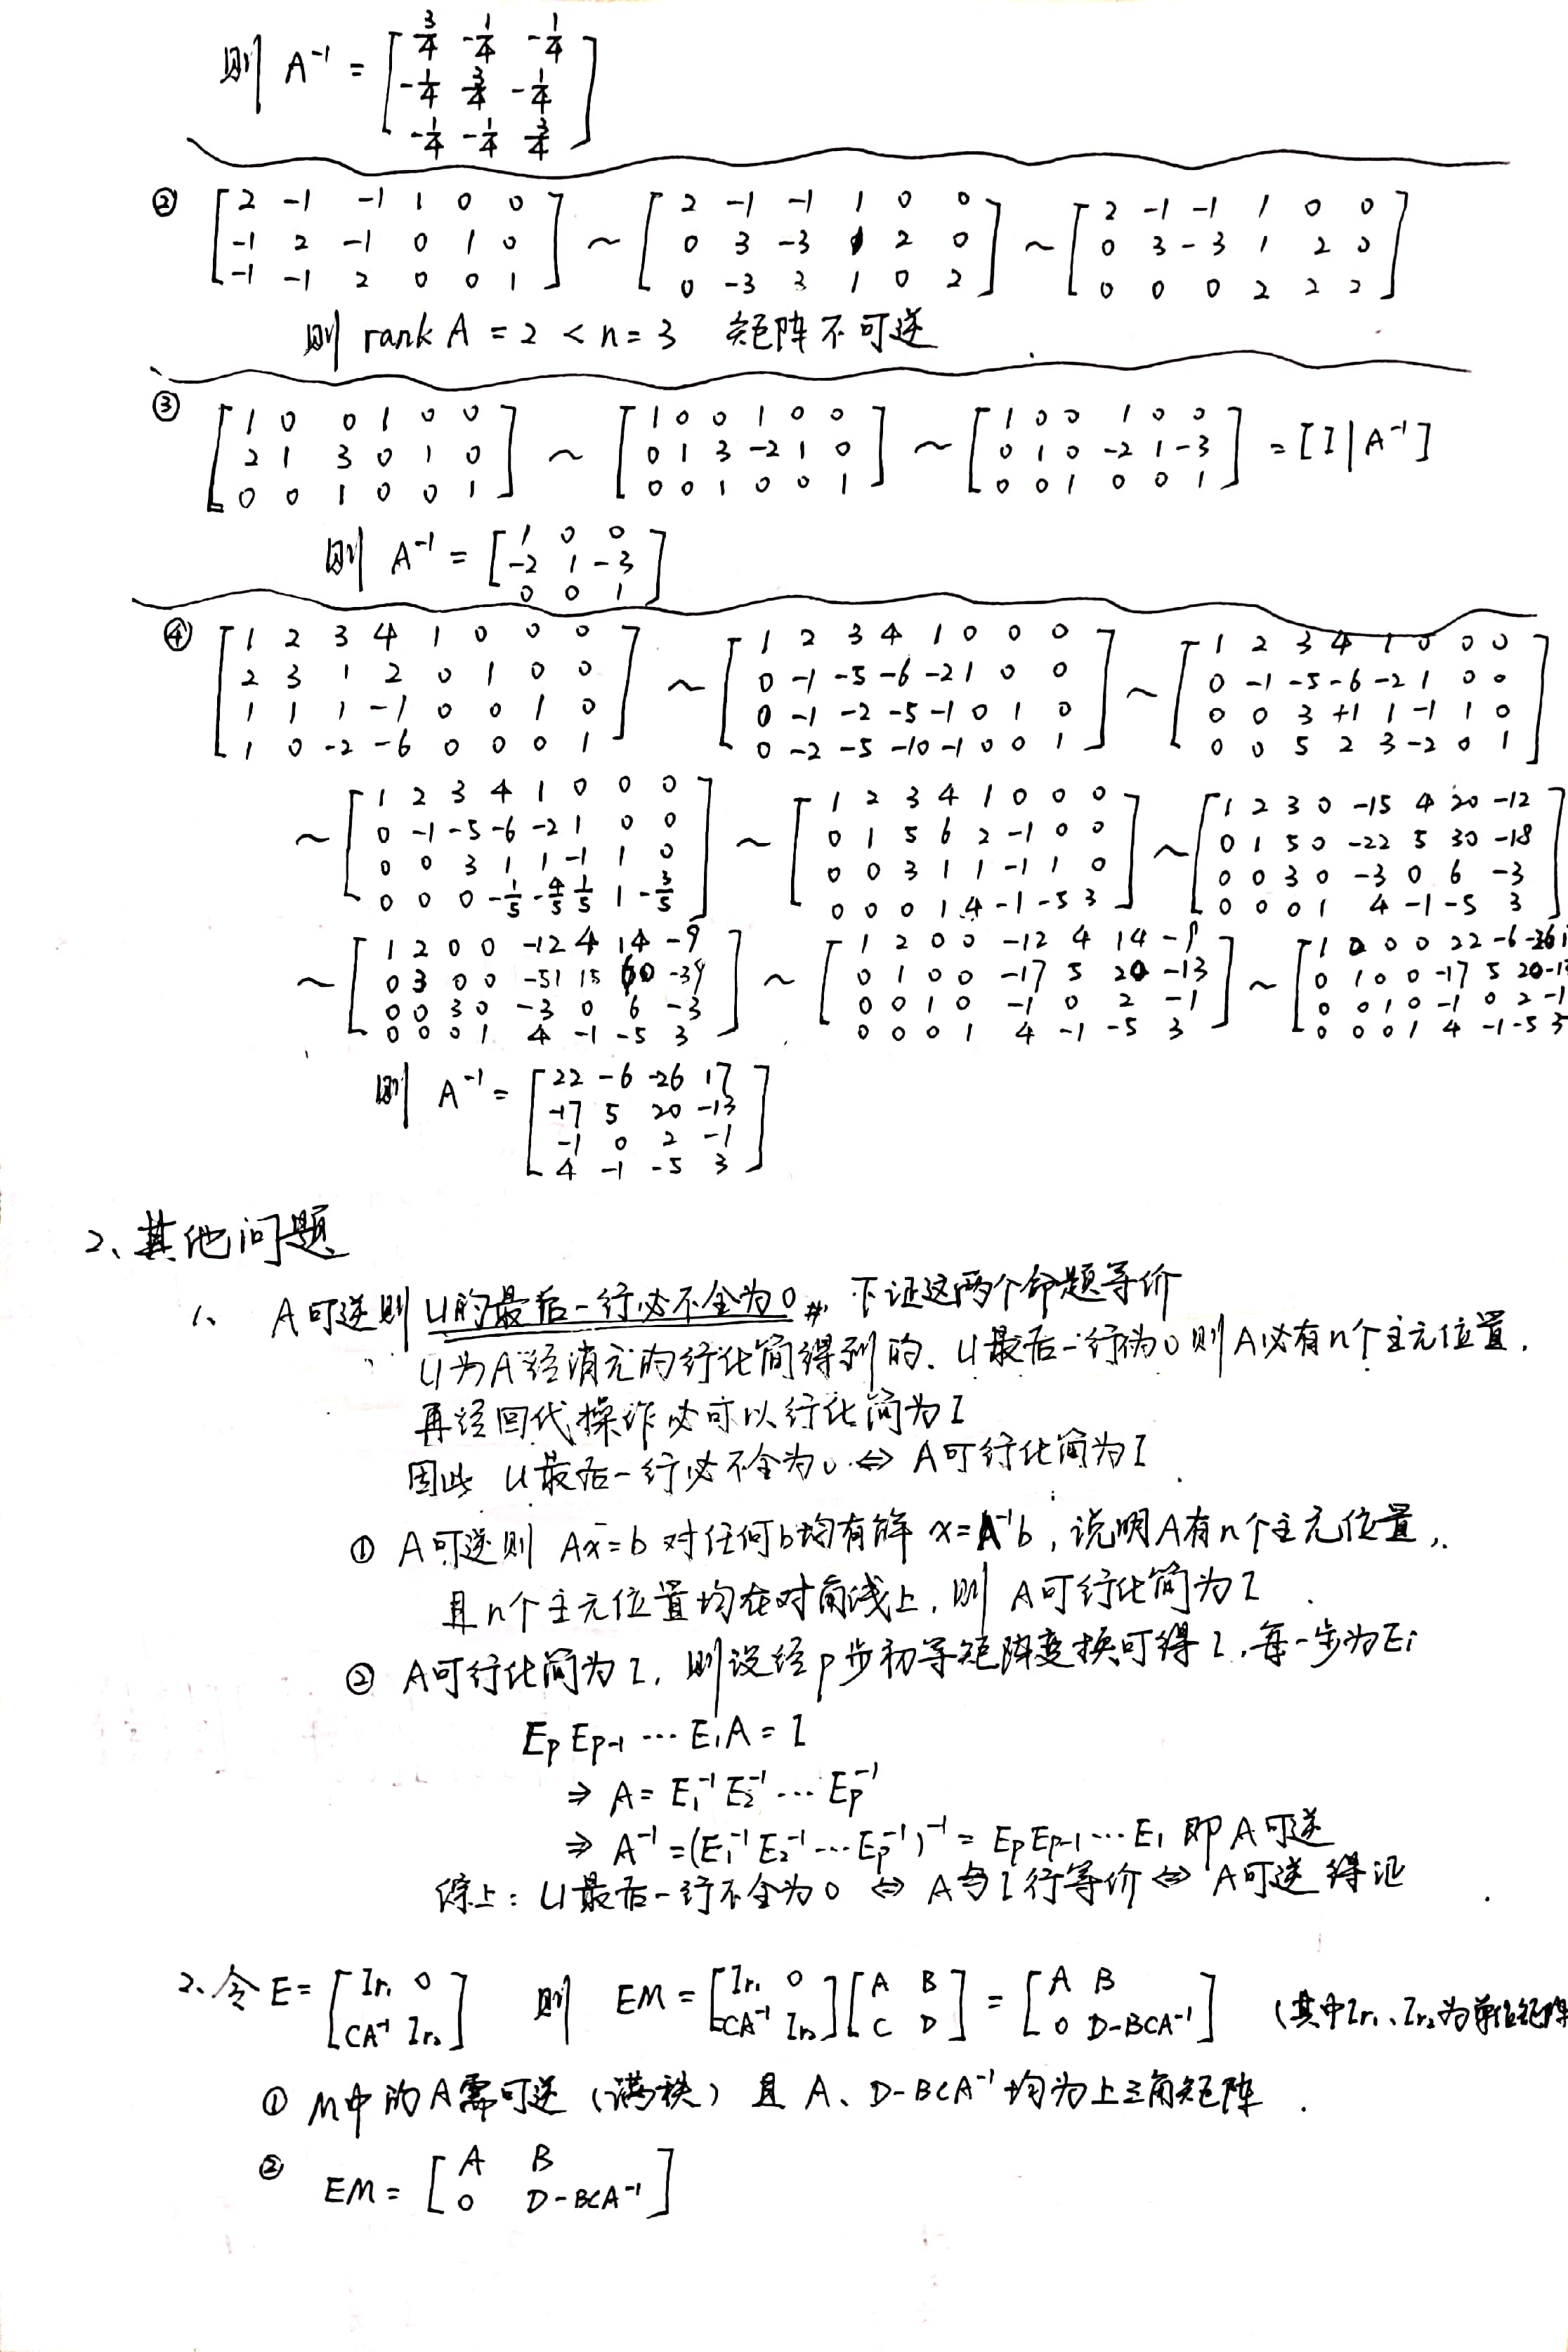 则 A⁻¹ = [3/4 -1/4 -1/4; -1/4 3/4 -1/4; -1/4 -1/4 3/4]
② [2 -1 -1 1 0 0; -1 2 -1 0 1 0; -1 -1 2 0 0 1] ~ [2 -1 -1 1 0 0; 0 3 -3 1 2 0; 0 -3 3 1 0 2] ~ [2 -1 -1 1 0 0; 0 3 -3 1 2 0; 0 0 0 2 2 2]
则 rank A = 2 < n = 3 矩阵不可逆
③ [1 0 0 1 0 0; 2 1 3 0 1 0; 0 0 1 0 0 1] ~ [1 0 0 1 0 0; 0 1 3 -2 1 0; 0 0 1 0 0 1] ~ [1 0 0 1 0 0; 0 1 0 -2 1 -3; 0 0 1 0 0 1] = [I | A⁻¹]
则 A⁻¹ = [1 0 0; -2 1 -3; 0 0 1]
④ [1 2 3 4 1 0 0 0; 2 3 1 2 0 1 0 0; 1 1 1 -1 0 0 1 0; 1 0 -2 -6 0 0 0 1] ~ [1 2 3 4 1 0 0 0; 0 -1 -5 -6 -2 1 0 0; 0 -1 -2 -5 -1 0 1 0; 0 -2 -5 -10 -1 0 0 1] ~ [1 2 3 4 1 0 0 0; 0 -1 -5 -6 -2 1 0 0; 0 0 3 +1 1 -1 1 0; 0 0 5 2 3 -2 0 1]
~ [1 2 3 4 1 0 0 0; 0 -1 -5 -6 -2 1 0 0; 0 0 3 1 1 -1 1 0; 0 0 0 -1/5 -4/5 1/5 1 -3/5] ~ [1 2 3 4 1 0 0 0; 0 1 5 6 2 -1 0 0; 0 0 3 1 1 -1 1 0; 0 0 0 1 4 -1 -5 3] ~ [1 2 3 0 -15 4 20 -12; 0 1 5 0 -22 5 30 -18; 0 0 3 0 -3 0 6 -3; 0 0 0 1 4 -1 -5 3]
~ [1 2 0 0 -12 4 14 -9; 0 3 0 0 -51 15 60 -39; 0 0 3 0 -3 0 6 -3; 0 0 0 1 4 -1 -5 3] ~ [1 2 0 0 -12 4 14 -9; 0 1 0 0 -17 5 20 -13; 0 0 1 0 -1 0 2 -1; 0 0 0 1 4 -1 -5 3] ~ [1 0 0 0 22 -6 -26 1; 0 1 0 0 -17 5 20 -1; 0 0 1 0 -1 0 2 -1; 0 0 0 1 4 -1 -5 3
则 A⁻¹ = [22 -6 -26 17; -17 5 20 -13; -1 0 2 -1; 4 -1 -5 3]
2、其他问题
1、 A可逆则 U的最后一行必不全为0, 下证这两个命题等价
U为A经消元的行化简得到的. U最后一行为0则A必有n个主元位置.
再经回代操作必可以行化简为I
因此 U最后一行必不全为0 ⇔ A可行化简为I
① A可逆则 Ax=b 对任何b均有解 x=A⁻¹b, 说明A有n个主元位置,
且n个主元位置均在对角线上, 则 A可行化简为I
② A可行化简为I, 则设经p步初等矩阵变换可得I, 每一步为Ei
Ep Ep-1 ⋯ E1A = I
⇒ A = E1⁻¹ E2⁻¹ ⋯ Ep⁻¹
⇒ A⁻¹ = (E1⁻¹ E2⁻¹ ⋯ Ep⁻¹)⁻¹ = Ep Ep-1 ⋯ E1 即A可逆
综上: U最后一行不全为0 ⇔ A与I行等价 ⇔ A可逆 得证
2、令 E = [Ir₁ 0; CA⁻¹ Ir₂] 则 EM = [Ir₁ 0; -CA⁻¹ Ir₂][A B; C D] = [A B; 0 D-BCA⁻¹] (其中Ir₁、Ir₂为单位矩阵
① M中的A需可逆 (满秩) 且 A、D-BCA⁻¹ 均为上三角矩阵
② EM = [A B; 0 D-BCA⁻¹]